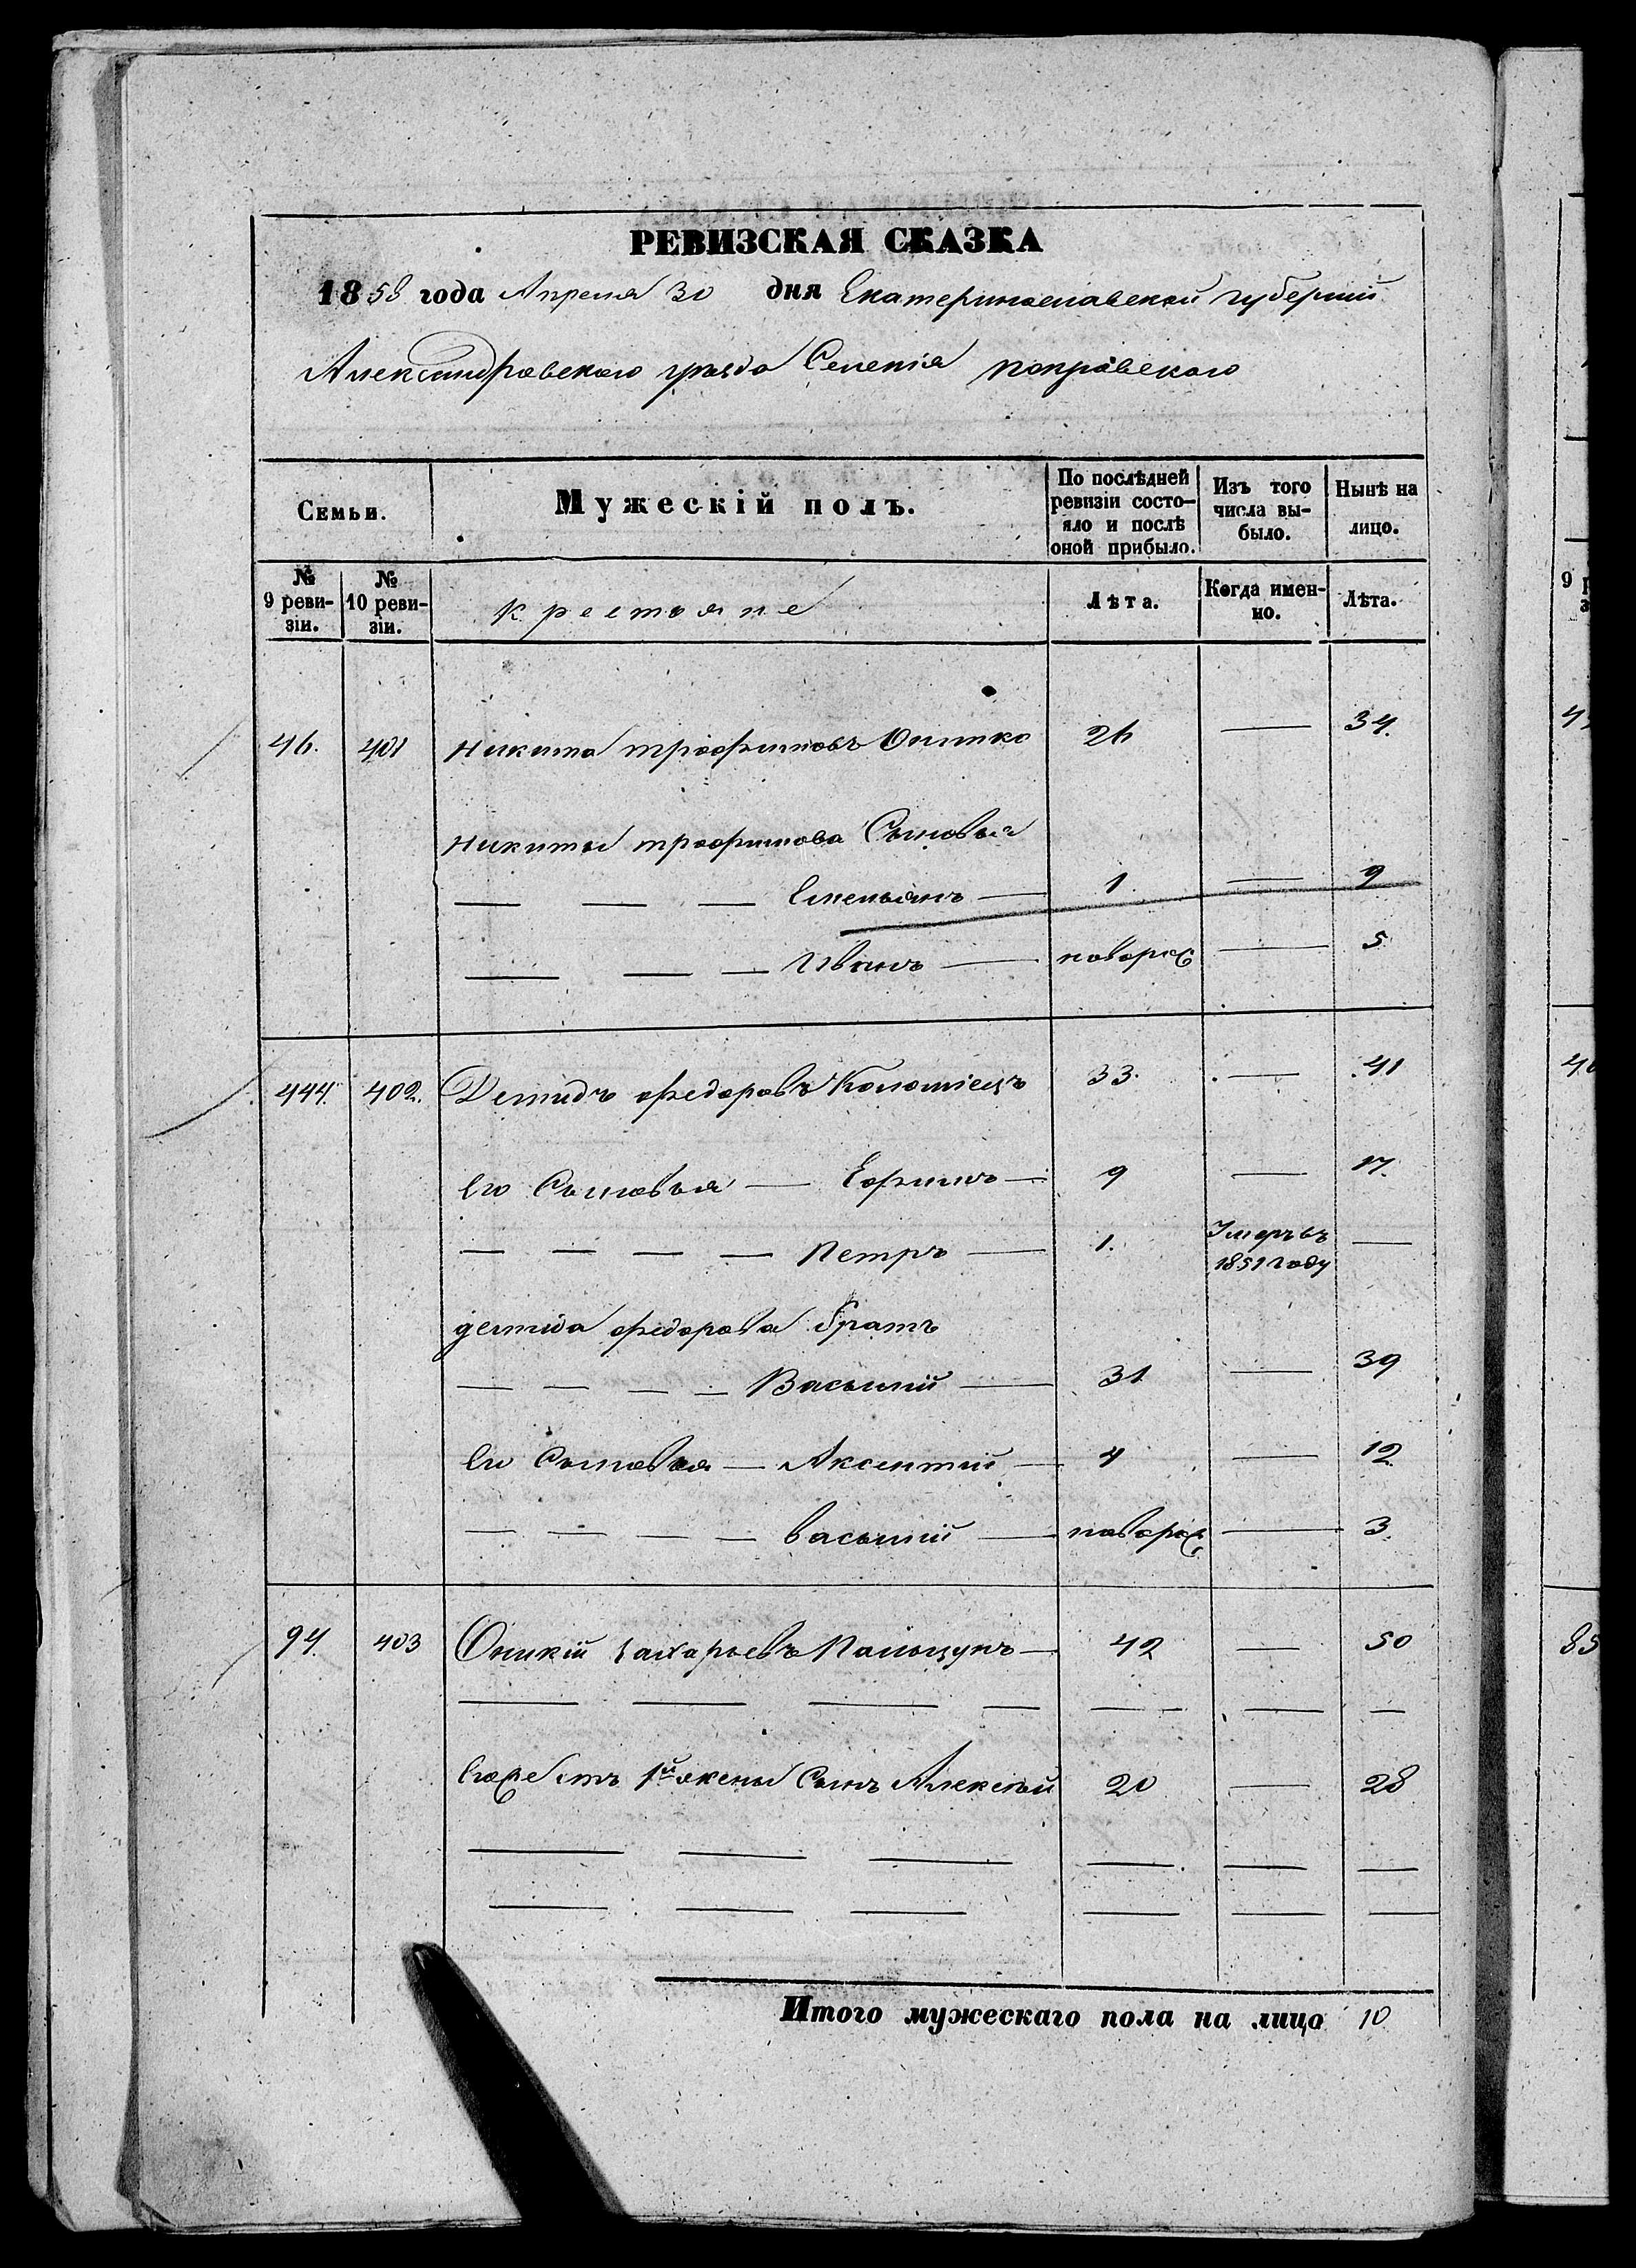 РЕВИЗСКАЯ СКАЗКА
1858 года Апреля 30 дня Екатеринославской губернии
Александровского уезда Селенія покровского
Семьи. Мужескій полъ. По послѣдней ревизіи состо-яло и послѣ оной прибыло. Изъ того числа вы-было. Нынѣ на лицо.
№ 9 реви-зіи. № 10 реви-зіи. крестьяне Лѣта. Когда имен-но. Лѣта.
46. 401 Никита трофимовъ 26 — 34.
Никиты трофимова Сыновья
— — — Емельянъ — 1. — 9
— — — Иванъ — новорож — 5
444. 402. Демидъ федоровъ Коломіецъ 33. — 41
Его Сыновья — Ефимъ — 9 — 17.
— — — — Петръ — 1. Умеръ въ 1851 году —
демида федорова братъ
— — — — Василій — 31 — 39
Его Сыновья — Аксентий — 4 — 12
— — — — василій — новорож — 3.
94. 403 Оникій захарьевъ — 42 — 50
Его же отъ 1й жены Сынъ Алексѣй 20 — 28
Итого мужескаго пола на лицо 10
9